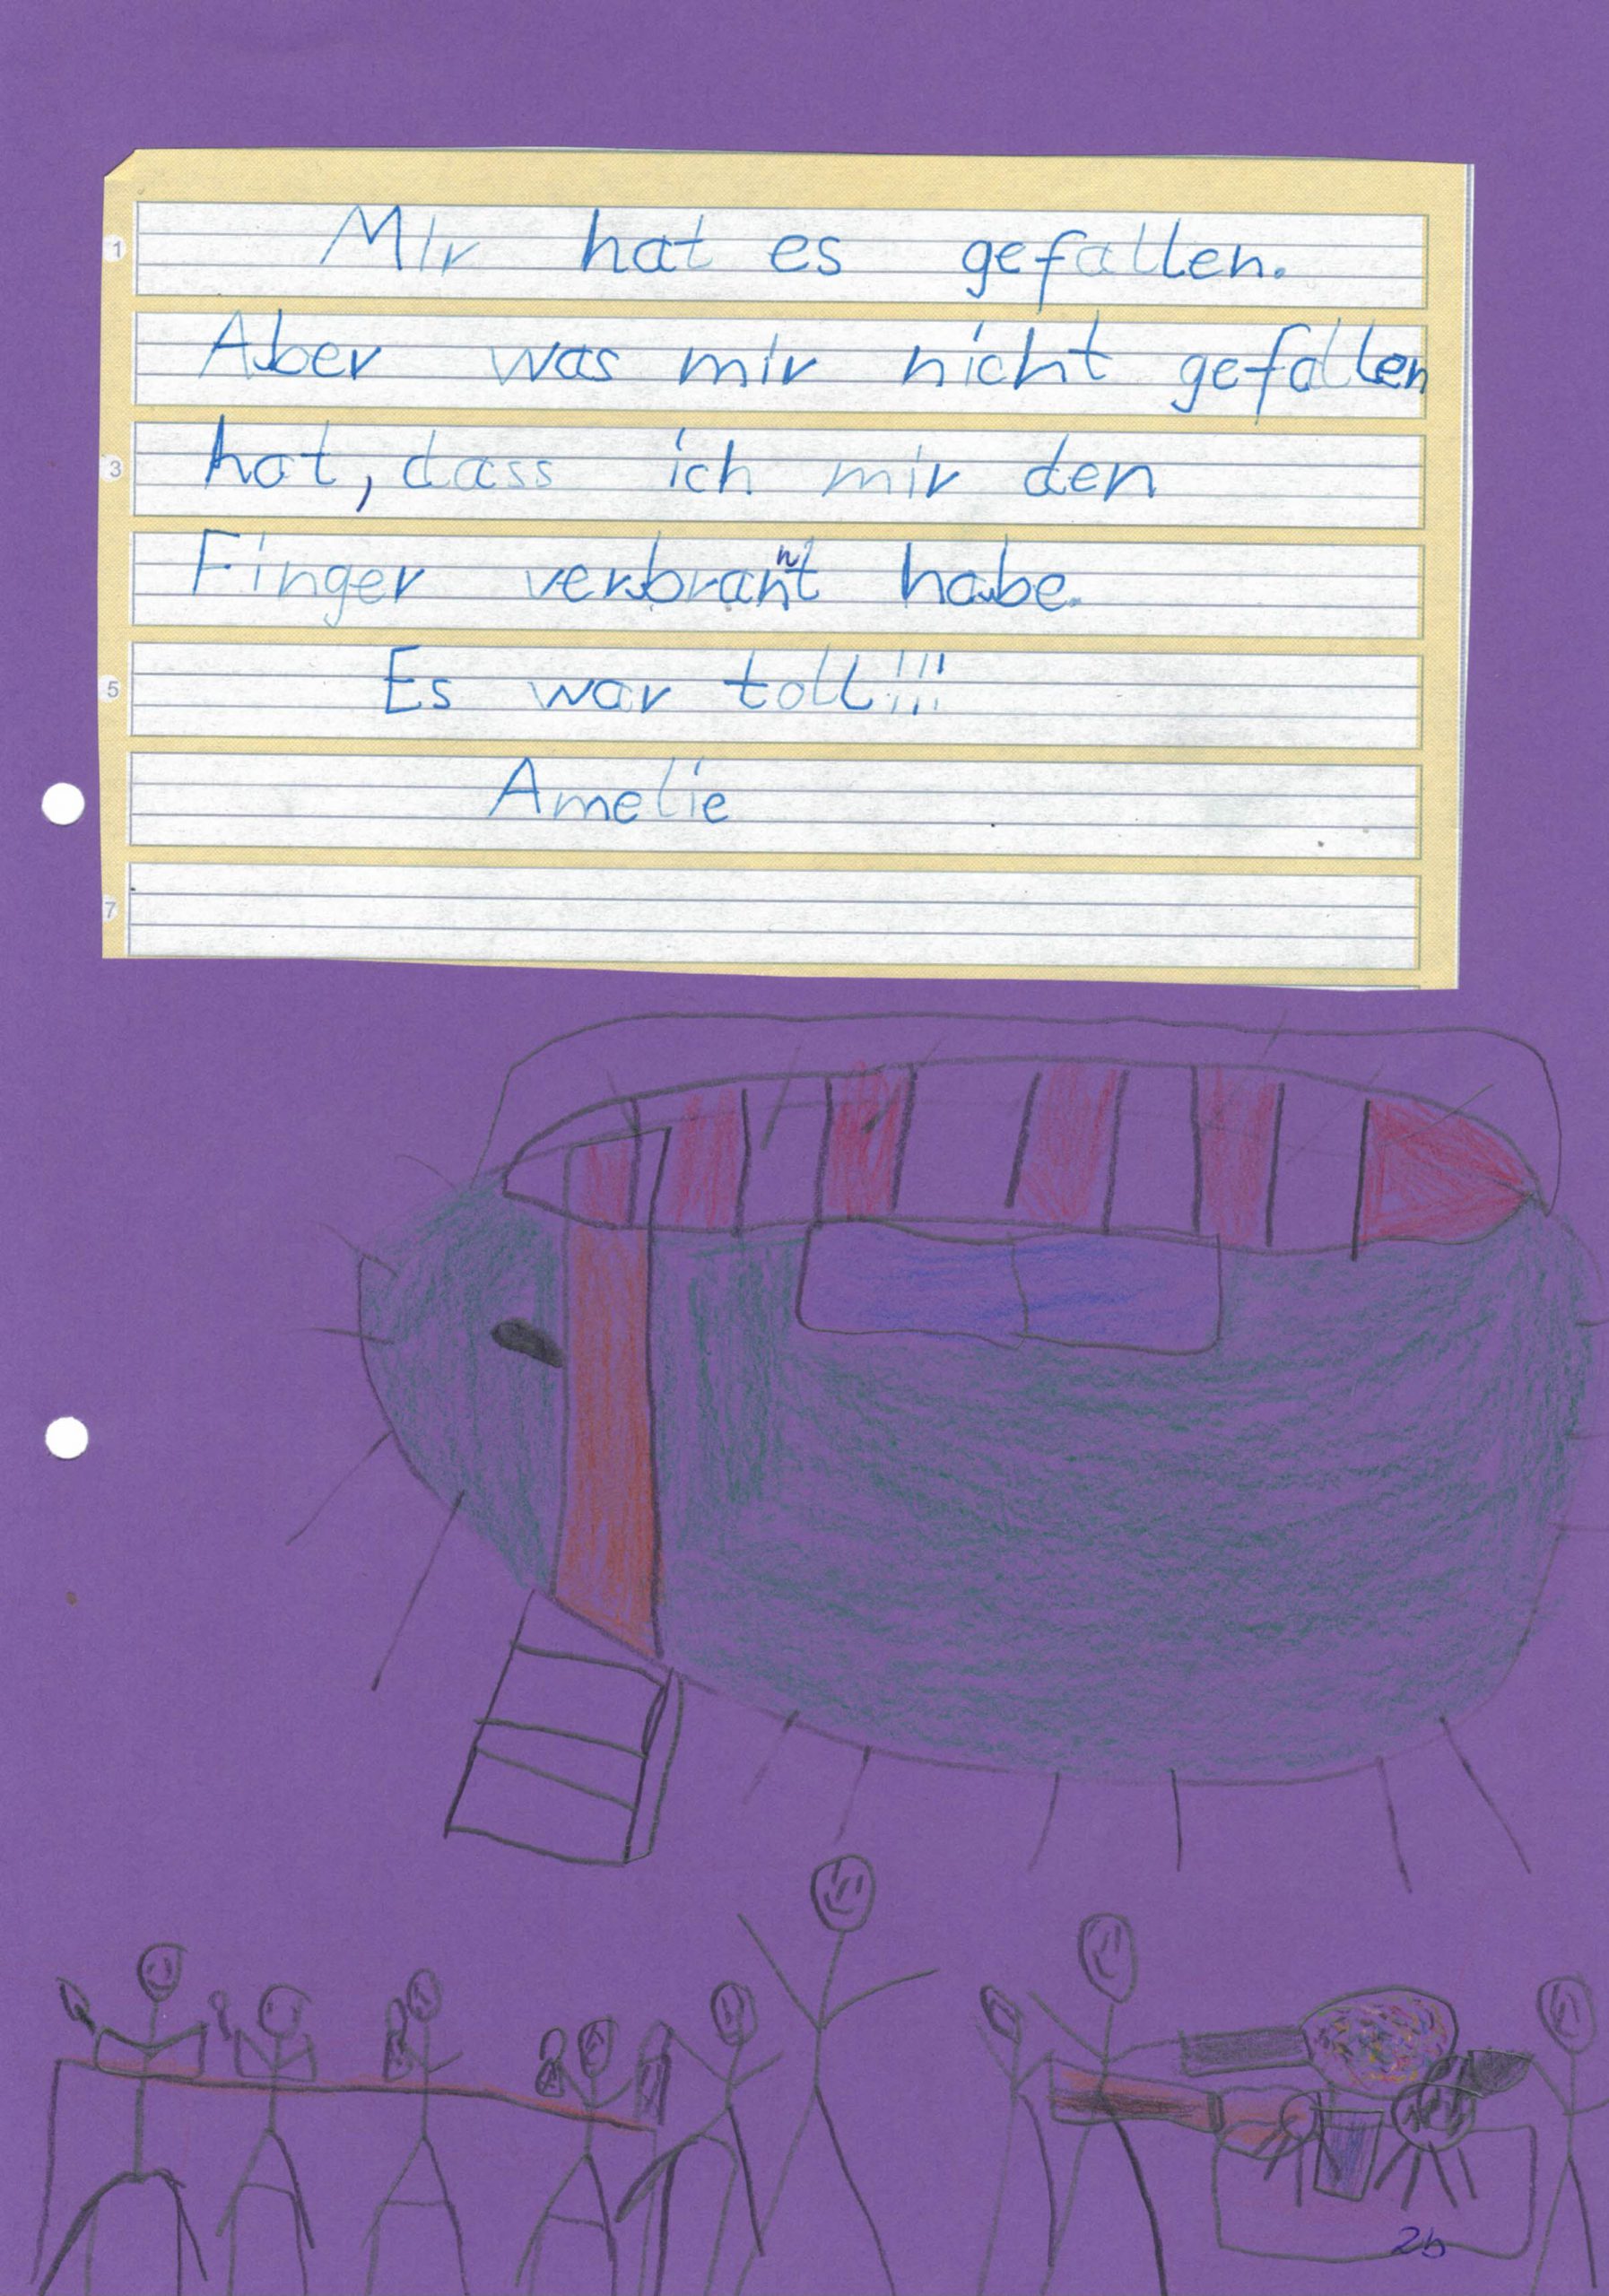 1
Mir hat es gefallen.
Aber was mir nicht gefallen
3
hat, dass ich mir den
Finger verbrannt habe.
5
Es war toll!!!
Amelie
7
2b